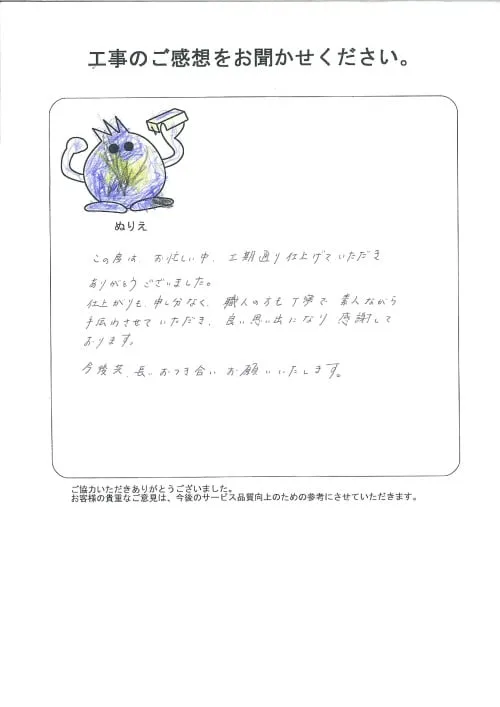 工事のご感想をお聞かせください。
ぬりえ
この度は、お忙しい中、工期通り仕上げていただき
ありがとうございました。
仕上がりも、申し分なく、職人の方も丁寧で、素人ながら
手伝わさせていただき、良い思い出になり 感謝して
おります。
今後共、長いおつき合い お願いいたします。
ご協力いただきありがとうございました。
お客様の貴重なご意見は、今後のサービス品質向上のための参考にさせていただきます。